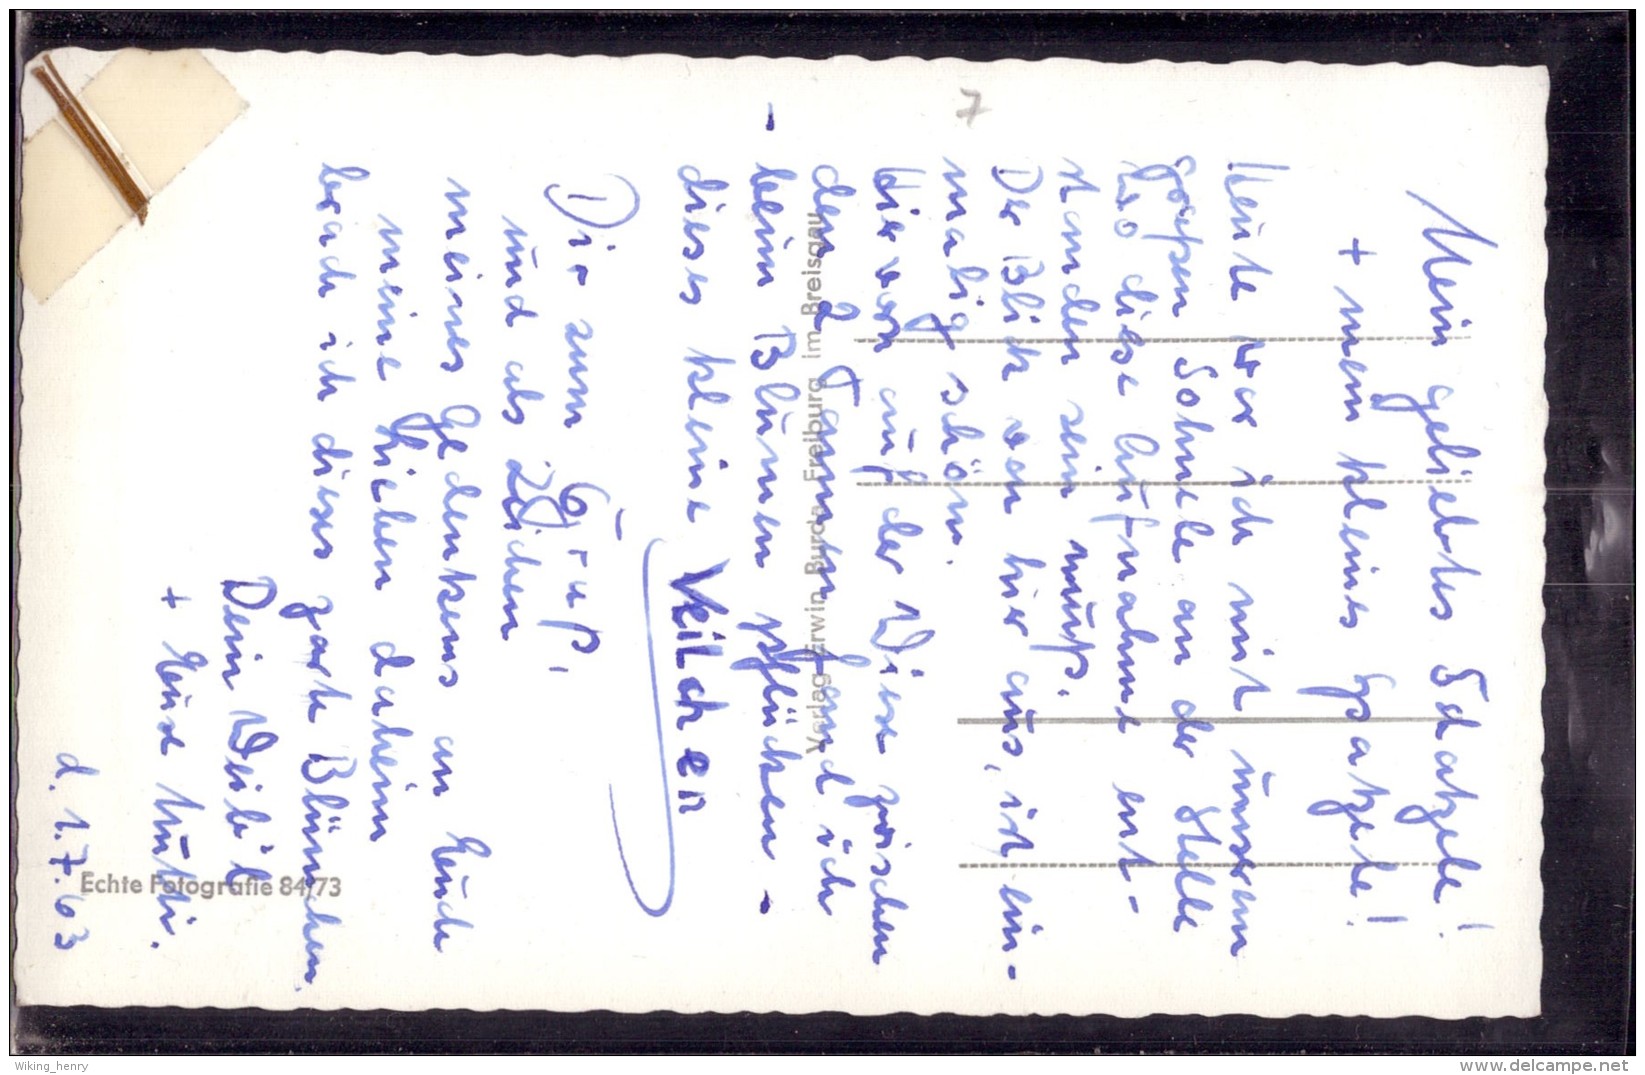 7
Mein geliebtes Schatzele!
+ mein kleines Spatzele!
Heute war ich mit unserem
großen Sohnele an der Stelle
wo diese Aufnahme ent-
standen sein muß.
Der Blick von hier aus, ist ein-
malig schön.
Hier vorn auf der Wiese zwischen
den 2 Tannen fand ich
- beim Blumen pflücken -
dieses kleine Veilchen
Dir zum Gruß,
und als Zeichen
meines Gedenkens an Euch
meine Lieben daheim
brach ich dieses zarte Blümchen.
Dein Weib'l
+ Eure Mutti.
d. 1.7.63
Verlag Erwin Burda Freiburg im Breisgau
Echte Fotografie 84/73
Wiking_henry
www.delcampe.net